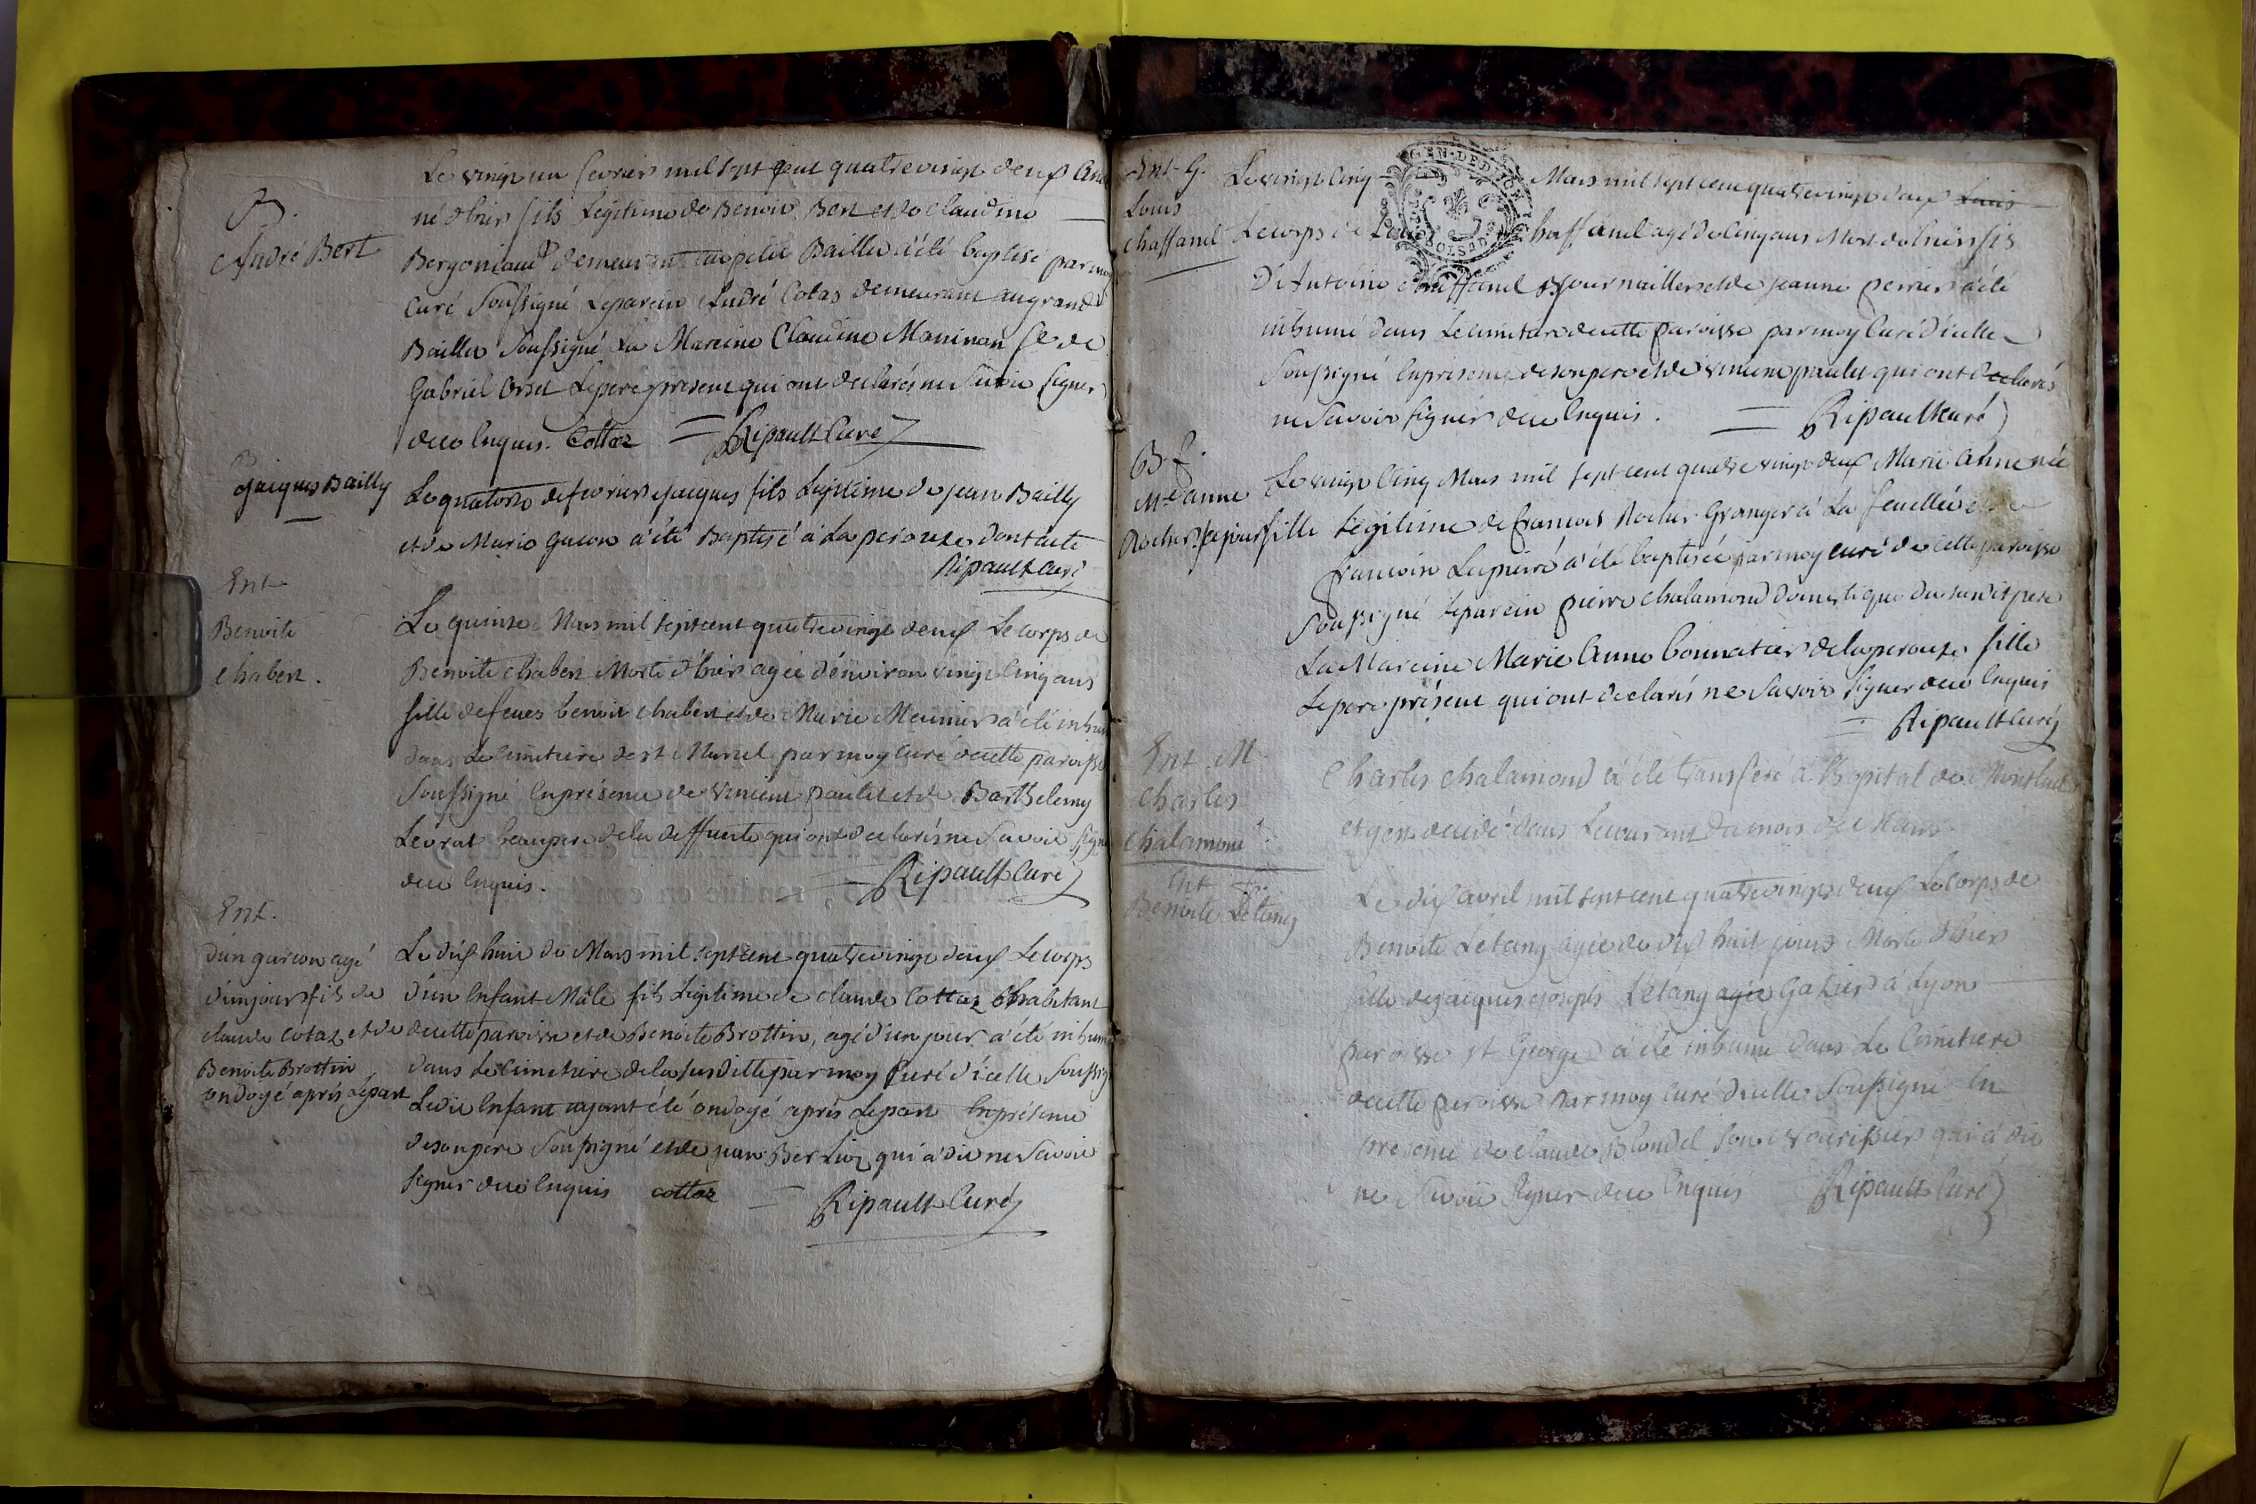 B.
André Bert
Le vingt un fevrier mil sept cent quatre vingt deux André
né d'hier fils Legitime de Benoit Bert et de Claudine
demeurant au petit Baillu a été baptisé par moy
Curé Soussigné Leparein André Cotas demeurant au grand
Baillu soussigné La Mareine Claudine Moninon fe de
Gabriel Orset Lepere present qui ont declarés ne Savoir signer
de ce Enquis. Cottaz = Ripault Curé
B
Jacques Bailly
Le quatorze de fevrier Jacques fils Legitime de jean Bailly
et de Marie Gacon a été Baptisé à La perouze Dont acte
Ripault Curé
Ent
Benoite
Chabert.
Le quinze Mars mil sept cent quatre vingt deux Le corps de
Benoite Chabert Morte d'hier agée d'environ vingt Cinq ans
fille de feues benoit chabert et de Marie Meunier a été inhumé
dans Le Cimetiere de st Marcel par moy curé de cette paroisse
Soussigné En présence de Vincent paulet et de Barthelemy
Levrat beaupere de la deffuncte qui ont declarés ne Savoir signer
de ce Enquis. = Ripault Curé
Ent.
D'un garcon agé
d'un jour fils de
claude Cotaz et de
Benoite Brottin
ondoyé après Lepart
Le dix huit de Mars mil sept cent quatre vingt deux Le corps
d'un Enfant Mâle fils Legitime de claude Cottaz habitant
de cette paroisse et de Benoite Brottin, agé d'un jour a été inhumé
dans Le Cimetiere de la susditte par moy Curé d'icelle Soussigné
Ledit Enfant ayant été ondoyé après Lepart En présence
de son pere Soussigné et de jean Berlioz qui a dit ne Savoir
signer de ce Enquis cottaz = Ripault Curé
Ent. G.
Louis
chaffanel
GEN. DE DIJON
Le vingt Cinq Mars mil sept cent quatre vingt deux Louis
Le corps de Louis chaffanel agé de Cinq ans Mort d'hier fils
D'Antoine chaffanel journaillier et de jeanne perrier a été
inhumé dans Le cimetiere de cette paroisse par moy Curé d'icelle
Soussigné En presence de son pere et de Vincent paulet qui ont declarés
ne Savoir signer de ce Enquis. = Ripault curé
B. f.
Mie anne
Rocher
Le vingt Cinq Mars mil sept cent quatre vingt deux Marie Anne née
ce jour fille Légitime de francois Rocher Granger à La feuillée et de
francoise a été baptisée par moy curé de cette paroisse
Soussigné Leparein pierre chalamond domestique du susdit pere
La Mareine Marie Anne bonnatier de laperouze fille
Le pere présent qui ont declarés ne Savoir signer de ce Enquis
= Ripault Curé
Ent. M
Charles
Chalamond
Charles chalamond a été transferé à l'hopital de Montluel
et y est decedé dans Le courant du mois de Mars.
Ent
Benoite Létang
Le dix avril mil sept cent quatre vingt deux Le Corps de
Benoite Létang agée de dix huit jours Morte d'hier
fille de jacques joseph Létang agée Gazier à Lyon
paroisse st George a été inhumé dans Le Cimetiere
de cette paroisse par moy curé d'icelle Soussigné En
presence de claude Blondel son nourissier qui a dit
ne Savoir signer de ce Enquis Ripault Curé